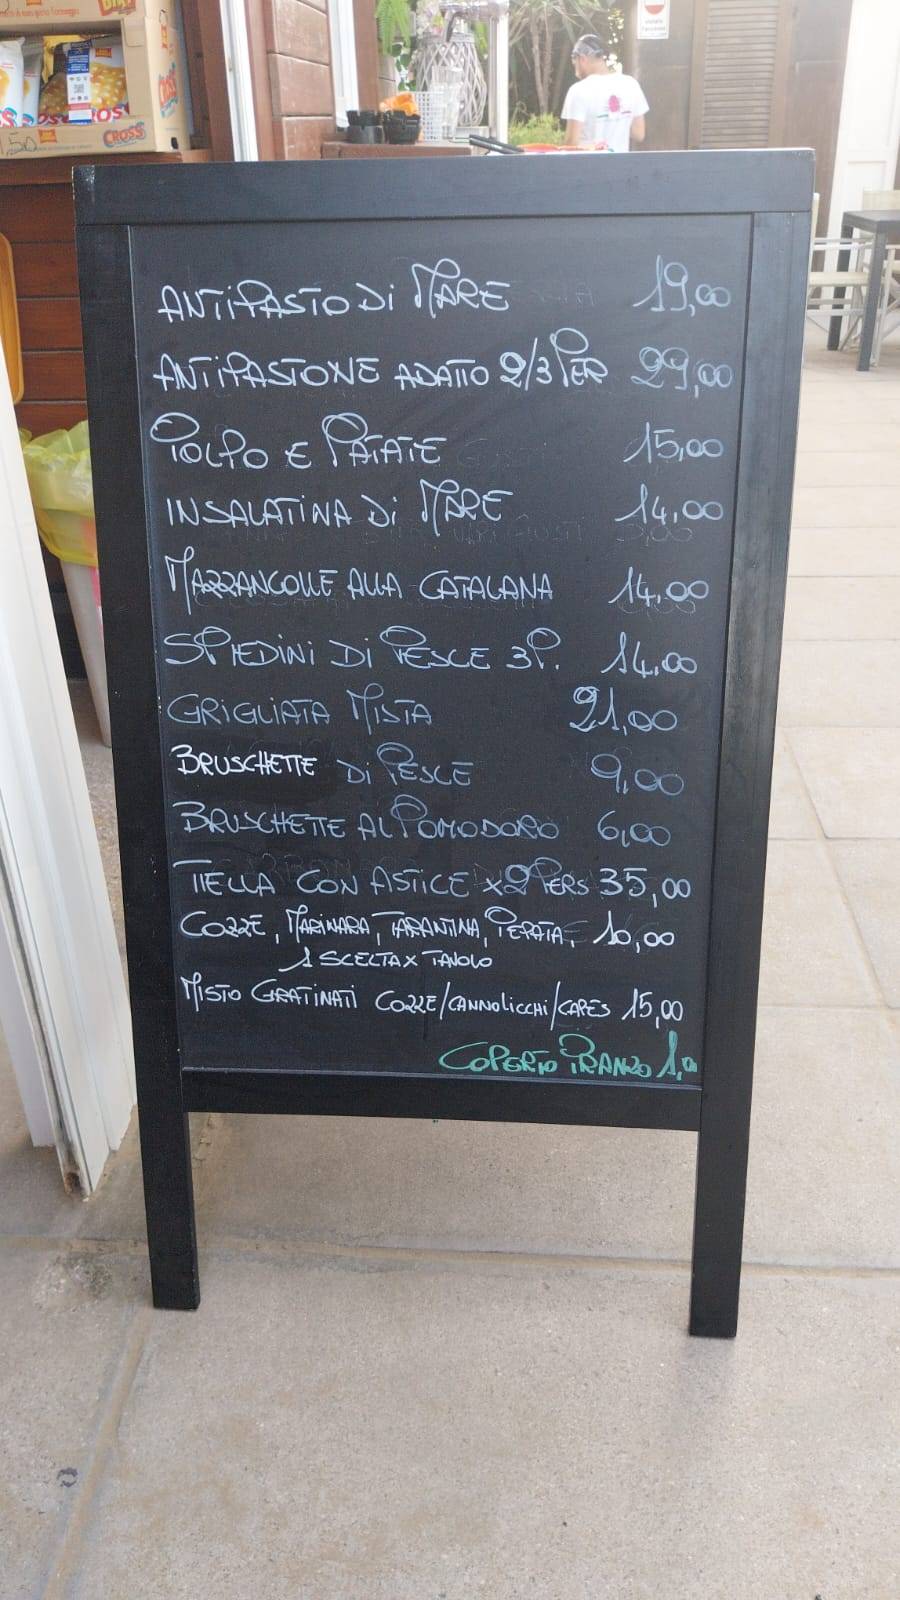 CROSS
ANTIPASTO DI MARE 19,00
ANTIPASTONE ADATTO 2/3 PER 29,00
POLPO E PATATE 15,00
INSALATINA DI MARE 14,00
MAZZANCOLLE ALLA CATALANA 14,00
SPIEDINI DI PESCE 3P. 14,00
GRIGLIATA MISTA 21,00
BRUSCHETTE DI PESCE 9,00
BRUSCHETTE AL POMODORO 6,00
TIELLA CON ASTICE X2 PERS 35,00
COZZE, MARINARA, TARANTINA, PEPATA, 10,00
1 SCELTA X TAVOLO
MISTO GRATINATI COZZE/CANNOLICCHI/CAPES 15,00
COPERTO PRANZO 1,00